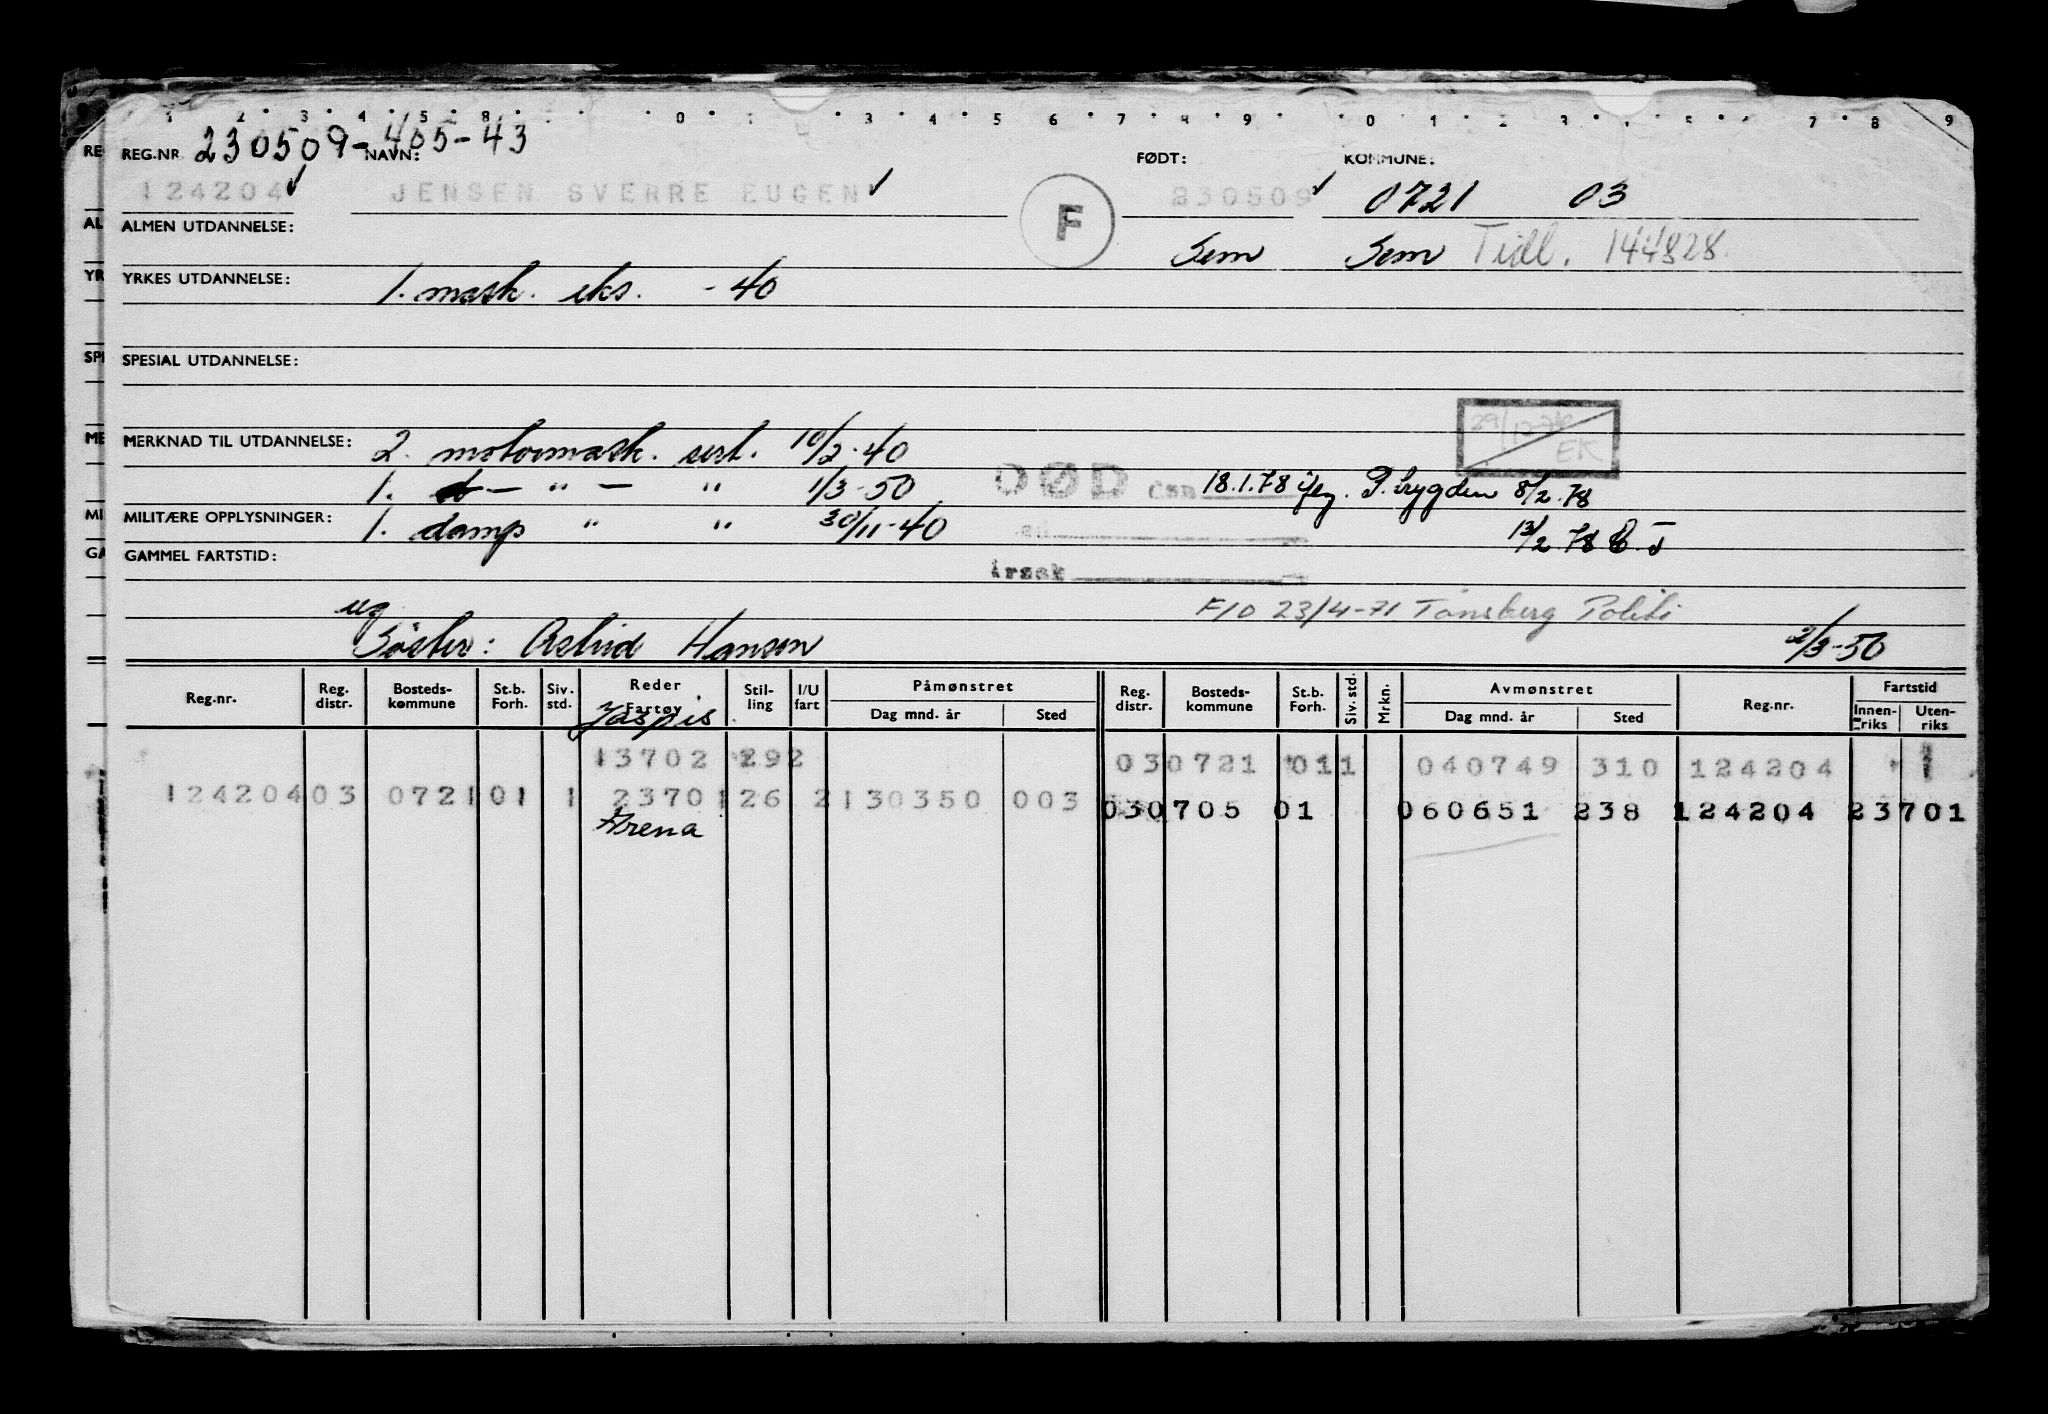 REG.NR. 230509-405-43 NAVN: FØDT: KOMMUNE:
124204 JENSEN SVERRE EUGEN F 230509 0721 03
ALMEN UTDANNELSE: Sem Sem Tidl. 144828.
YRKES UTDANNELSE: 1. mask. eks. -40
SPESIAL UTDANNELSE:
29/12-78 EK
MERKNAD TIL UTDANNELSE: 2. motormask. sert. 10/2-40
1. do — " — " 1/3-50 DØD 18.1.78 P. trygden 8/2.78
MILITÆRE OPPLYSNINGER: 1. damp " " 30/11-40 13/2 78
GAMMEL FARTSTID: årsak
ug F/O 23/4-71 Tønsberg Politi
Søster: Astrid Hansen 2/3-50
Reg.nr. Reg. distr. Bosteds- kommune St.b. Forh. Siv. std. Reder Fartøy Stil- ling I/U fart Påmønstret Dag mnd. år Sted Reg. distr. Bosteds- kommune St.b. Forh. Siv. std. Mrkn. Avmønstret Dag mnd. år Sted Reg.nr. Fartstid Innen- riks Uten- riks
Jaspis
13702 292 030721 011 040749 310 124204 1
124204 03 0721 01 1 23701 26 2 130350 003 030705 01 060651 238 124204 23701
Arena